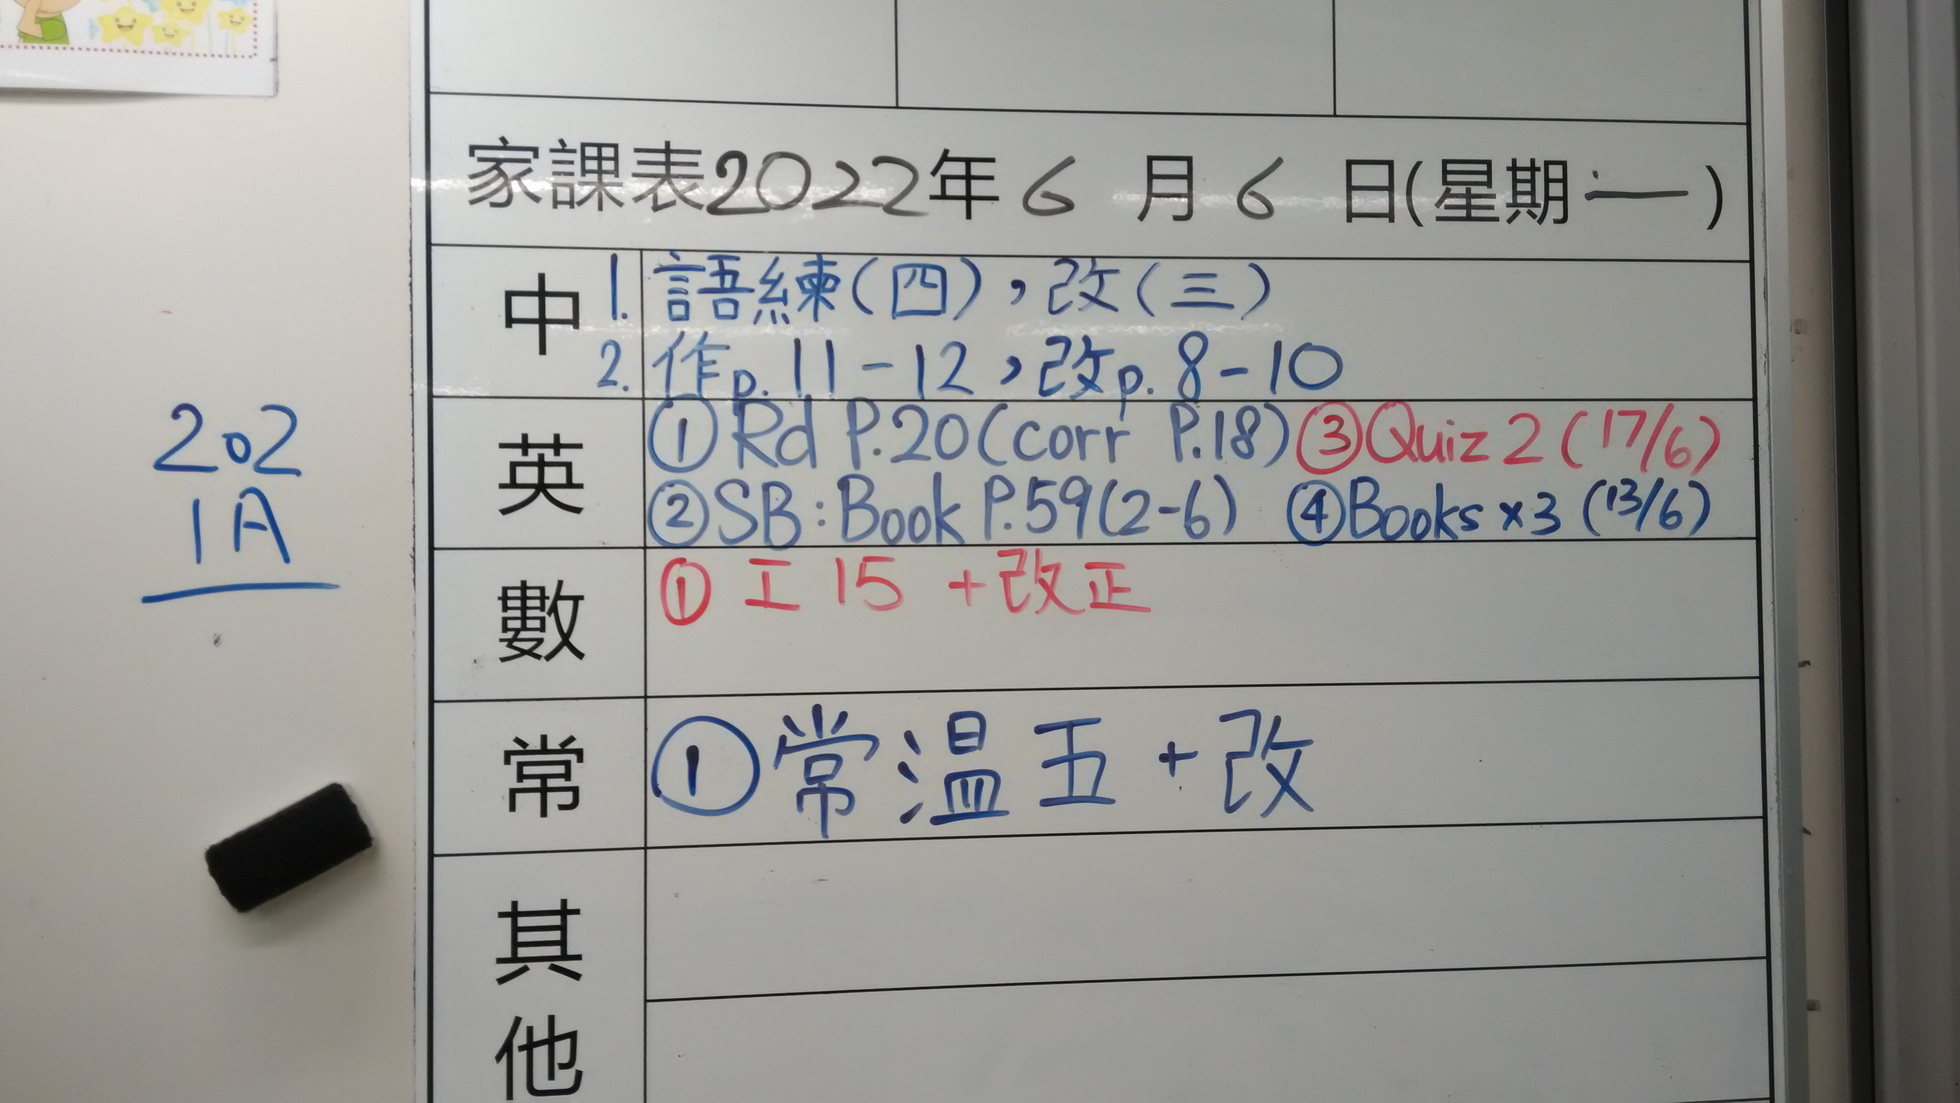 家課表2022年6月6日(星期一)
中
1. 語練(四),改(三)
2. 作p.11-12,改p.8-10
英
①Rd P.20(corr P.18)③Quiz 2 (17/6)
②SB:Book P.59(2-6) ④Books x3 (13/6)
數
① 工15 +改正
常
①常温五+改
其
他
202
1A